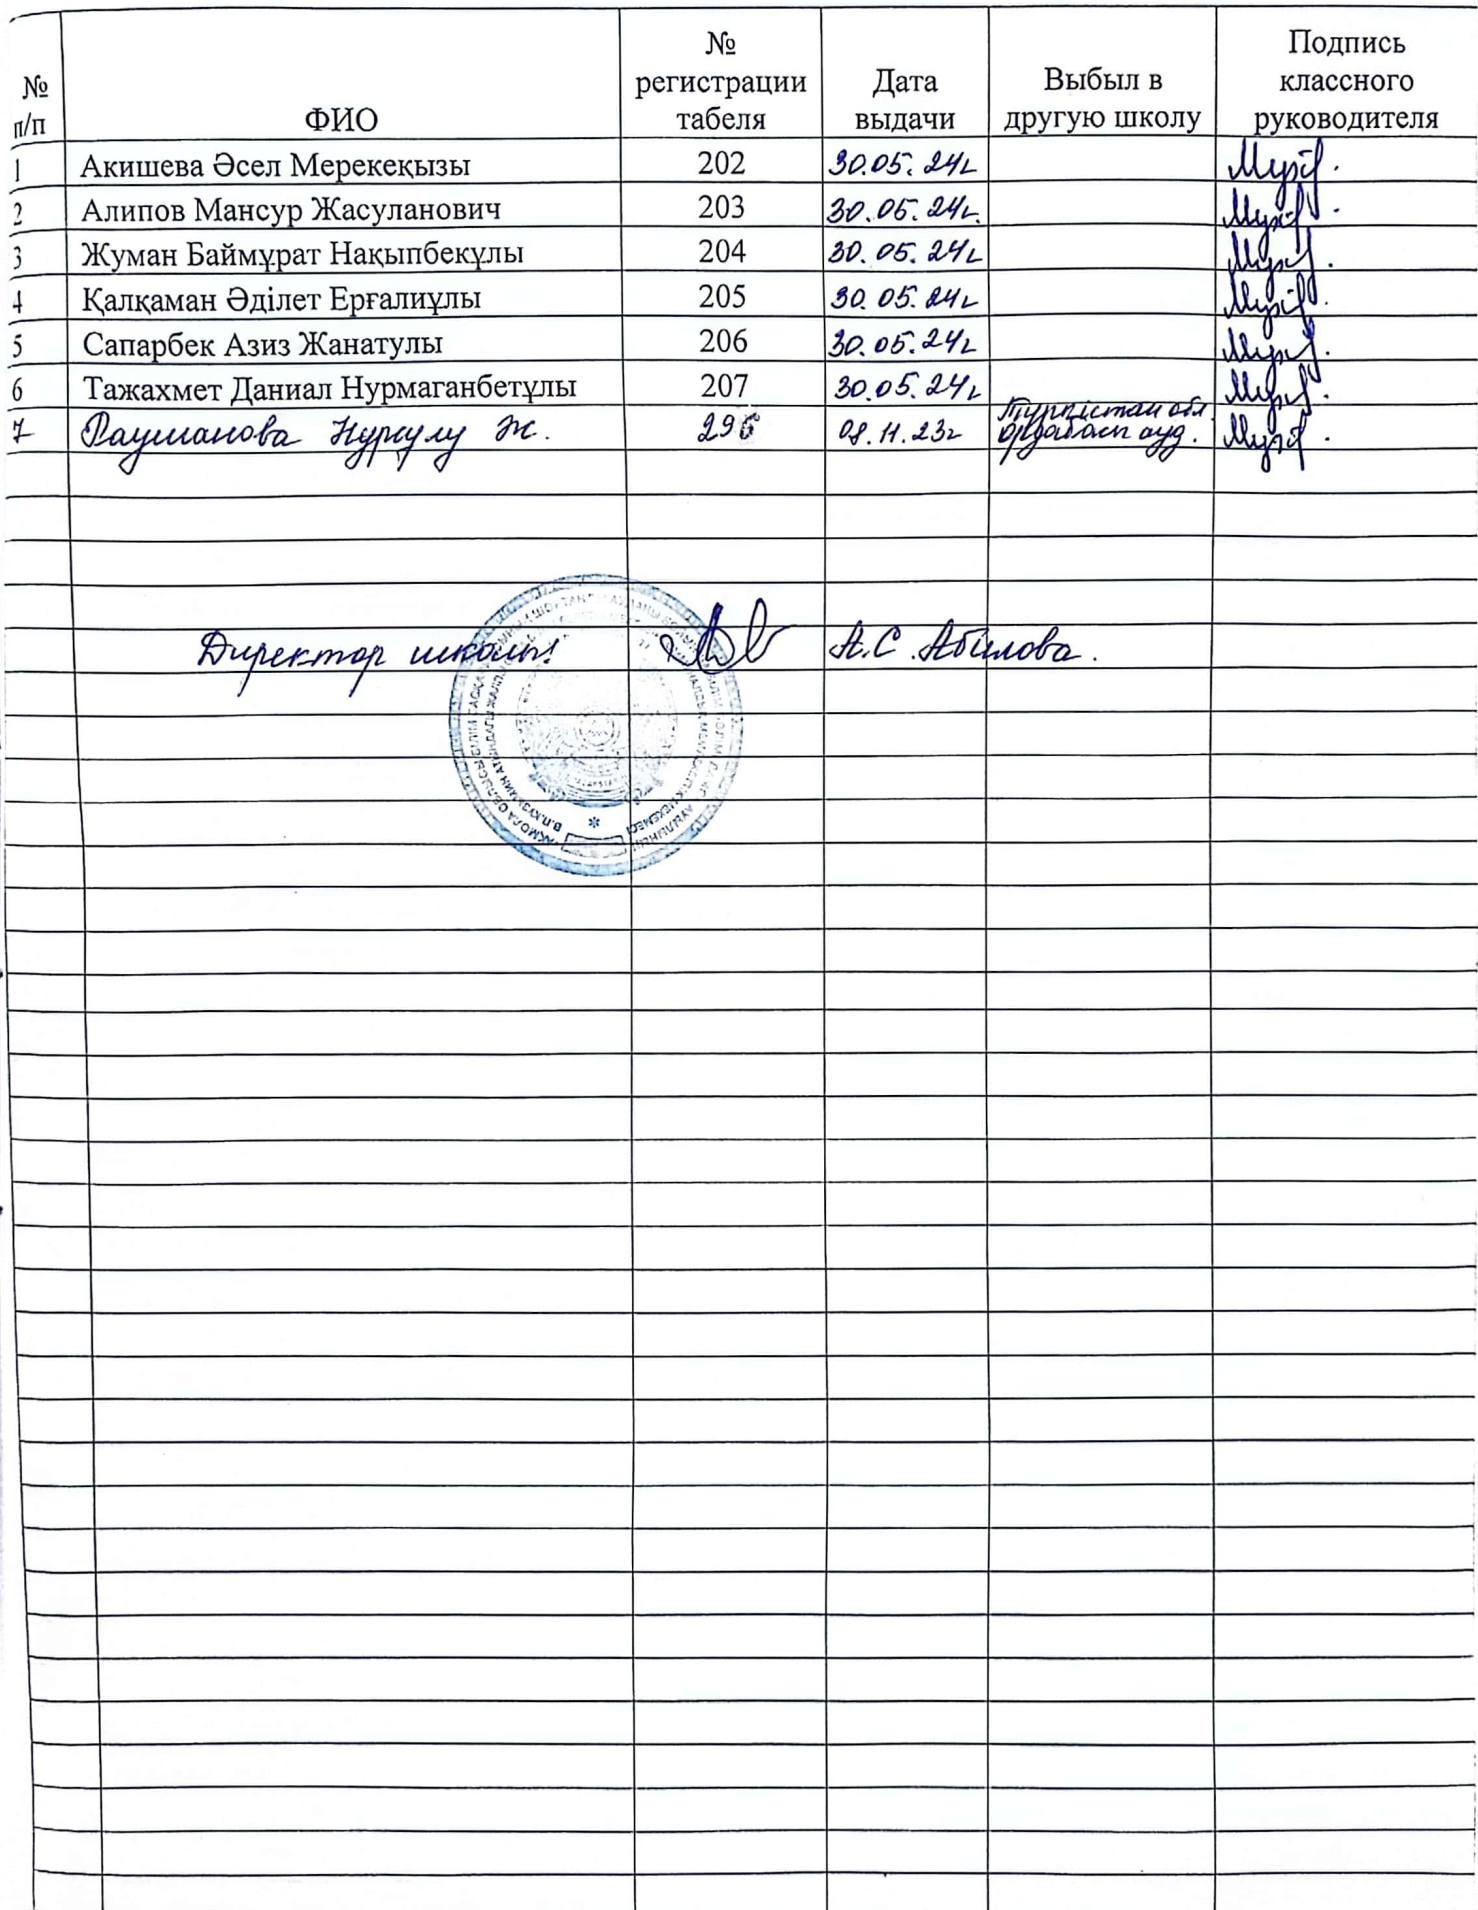 № п/п ФИО № регистрации табеля Дата выдачи Выбыл в другую школу Подпись классного руководителя
1 Акишева Әсел Мерекеқызы 202 30.05.24г
2 Алипов Мансур Жасуланович 203 30.05.24г.
3 Жуман Баймұрат Нақыпбекұлы 204 30.05.24г
4 Қалқаман Әділет Ерғалиұлы 205 30.05.24г
5 Сапарбек Азиз Жанатулы 206 30.05.24г
6 Тажахмет Даниал Нурмаганбетұлы 207 30.05.24г
7 Раушанова Нұргулу Ж. 296 08.11.23г Түркістан обл. Ордабасы ауд.
Директор школы: А.С. Абилова.